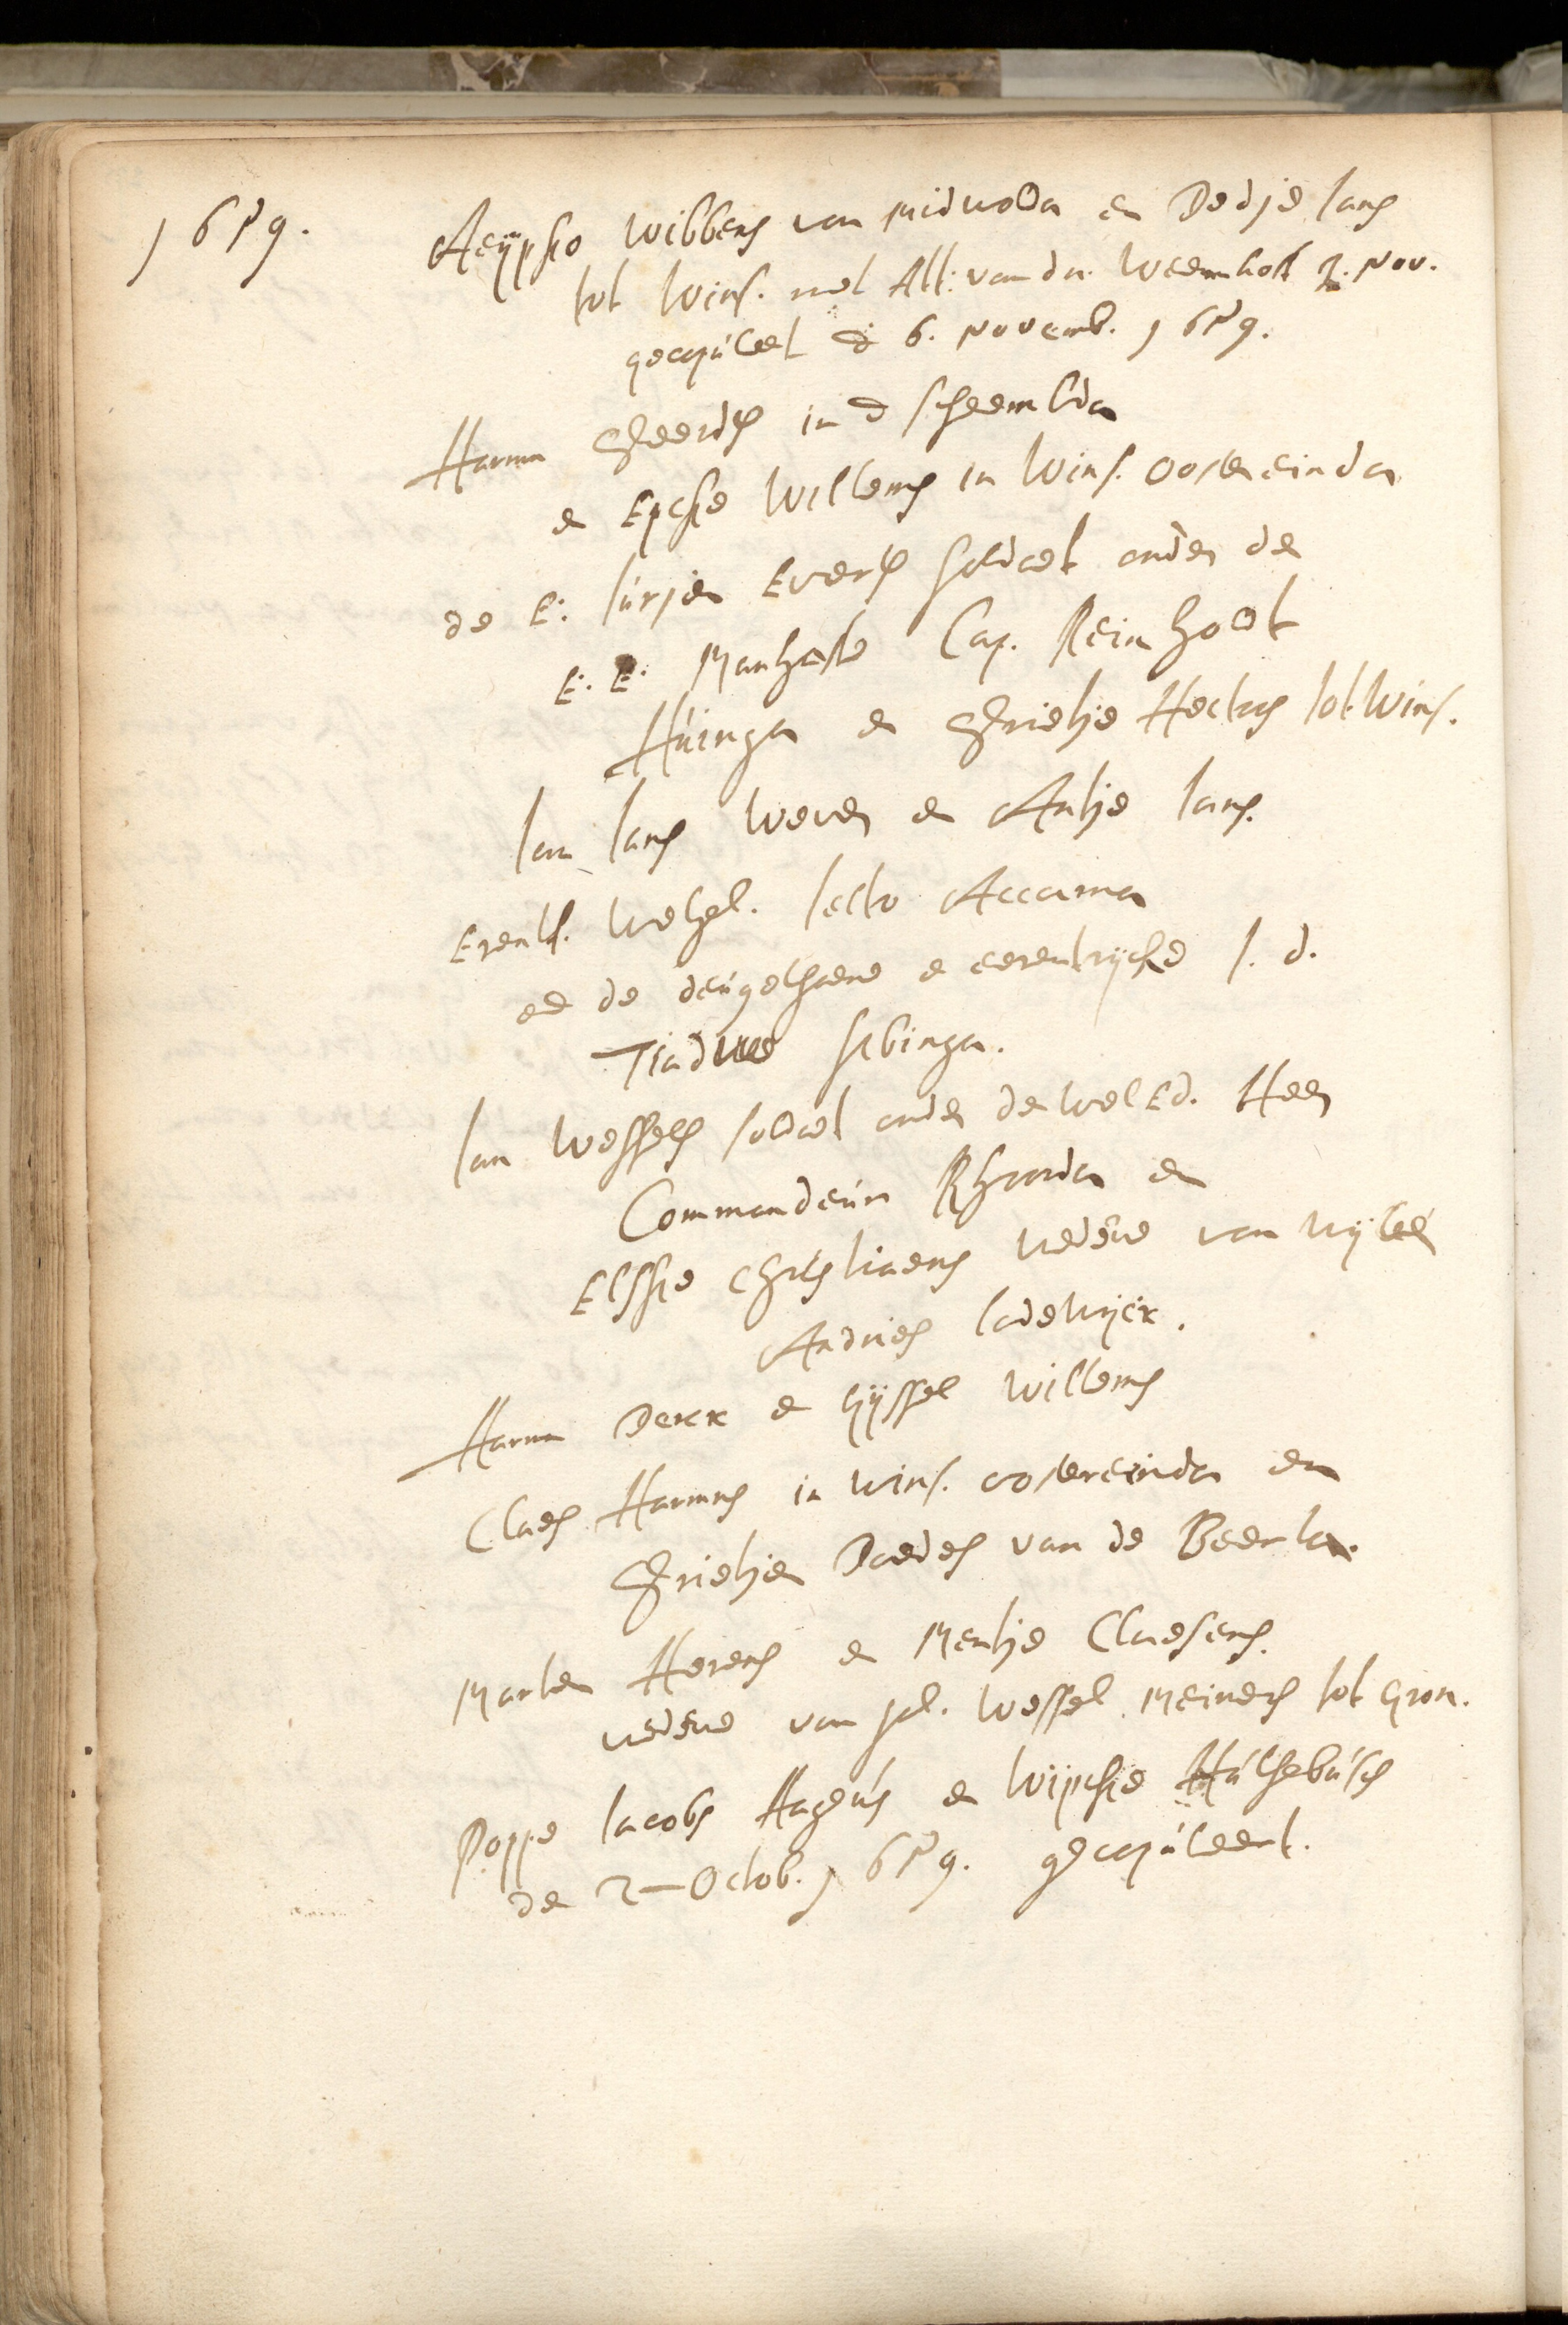 1659.
Aeijpko Wibbens van Midwolda en Dedje Jans
tot Wins. met Att: van dn. Weemhoff 2. Nov.
gecopúleet d 6. Novemb. 1659.
Harmn Geerdts in d Scheemlda
en Epcke Willems in Wins. oostereinda
de E: Júrjen Everts soldaet onder de
E. E. Manhafte Cap. Reinholt
Húinga en Grietje Hectors tot Wins.
Jan Jans Wever en Antje Jans.
Erentf. Wehgel. Jelto Accama
en de deúgetsame en eerentrijcke J. d.
Tiaduwe Sebinga.
Jan Wessels soldaet onder de wel Ed. Heer
Commandeúr en
Elsske Christiaens wedúwe van wijlen
Andries Lodewijck.
Harmn Derx en Gijssel Willems
Claes Harmns in Wins. oostereinda en
Grietjen Doedes van de Beerta.
Marten Herens en Mentje Claesens.
wedúwe van sal. Wessel Meinerts tot Gron.
Poppe Jacobs Hagens en Wijpcke Húlsebúsch
de 2 Octob. 1659. gecopúleert.